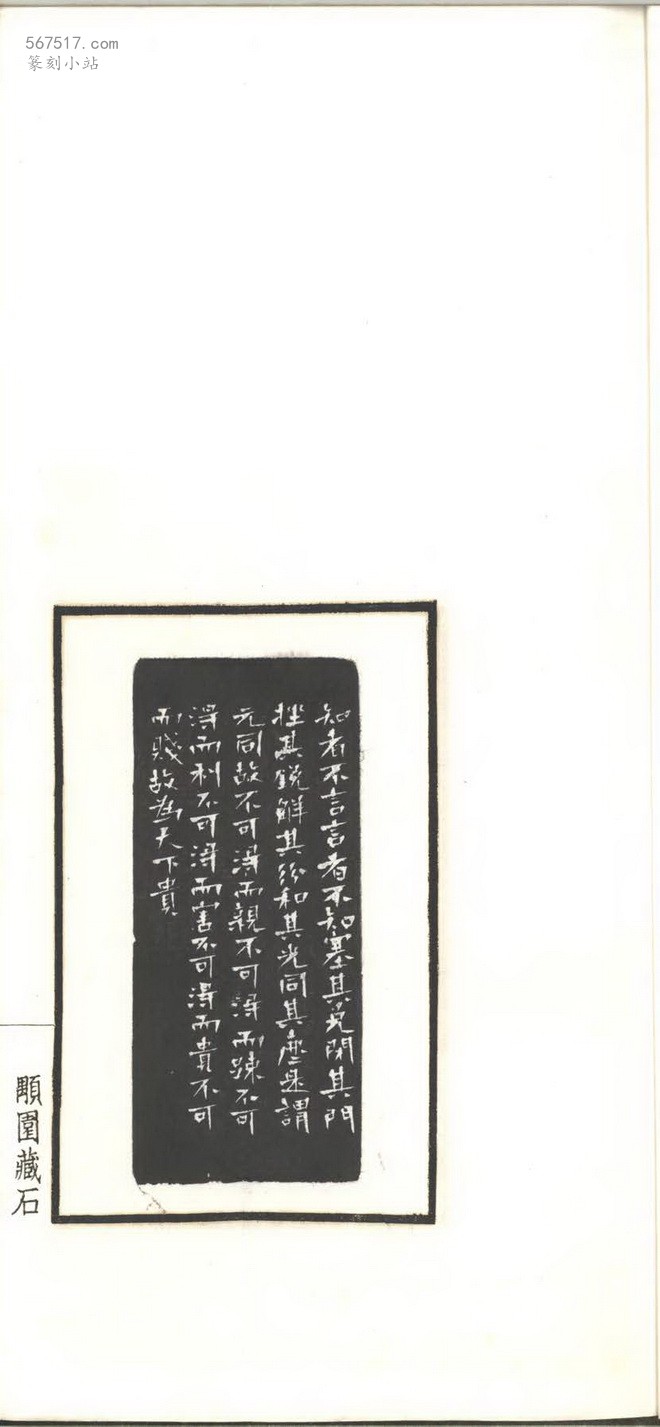 567517.com
篆刻小站
知者不言言者不知塞其兌閉其門
挫其銳解其紛和其光同其塵是謂
元同故不可得而親不可得而踈不可
得而利不可得而害不可得而貴不可
而賤故為天下貴
顒園藏石